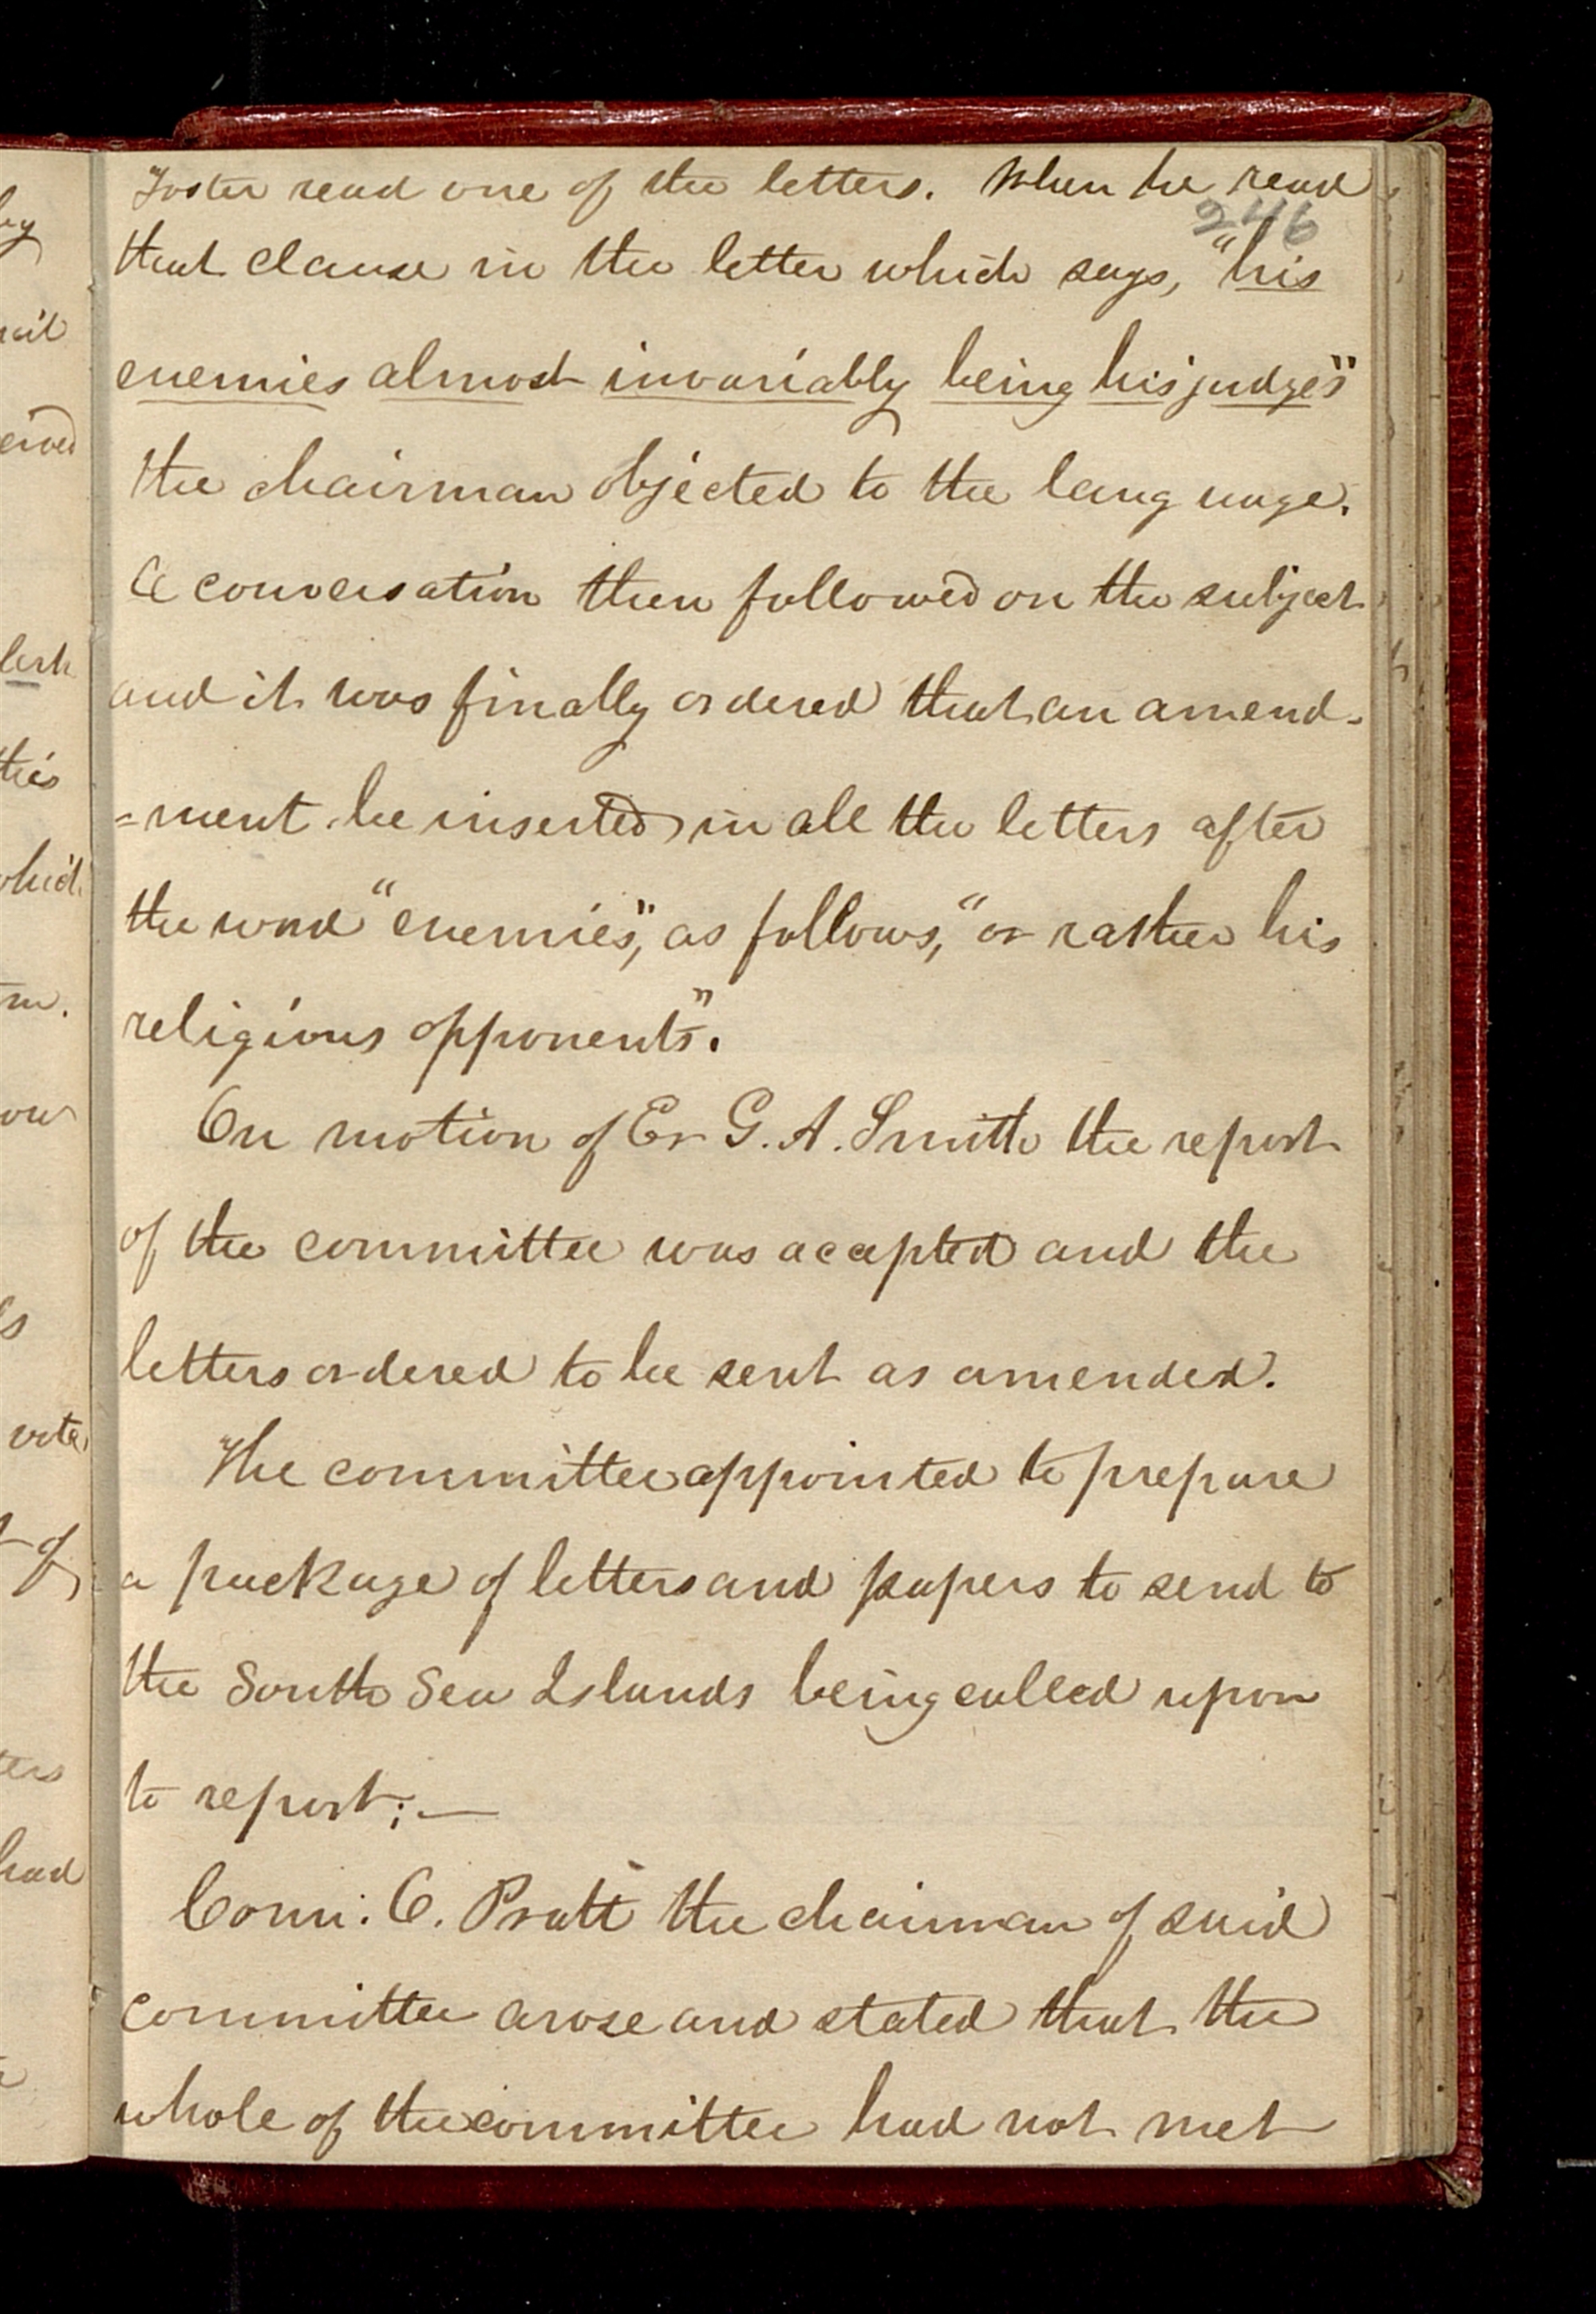 Foster read one of the letters. When he read
246
that clause in the letter which says, "his
enemies almost invariably being his judges"
the chairman objected to the language.
A conversation then followed on the subject
and it was finally ordered that an amend-
=ment be inserted in all the letters after
the word "enemies", as follows, "or rather his
religious opponents".
On motion of Er G. A. Smith the report
of the committee was accepted and the
letters ordered to be sent as amended.
The committee appointed to prepare
a package of letters and papers to send to
the South Sea Islands being called upon
to report;—
Coun. O. Pratt the chairman of said
committee arose and stated that the
whole of the committee had not met